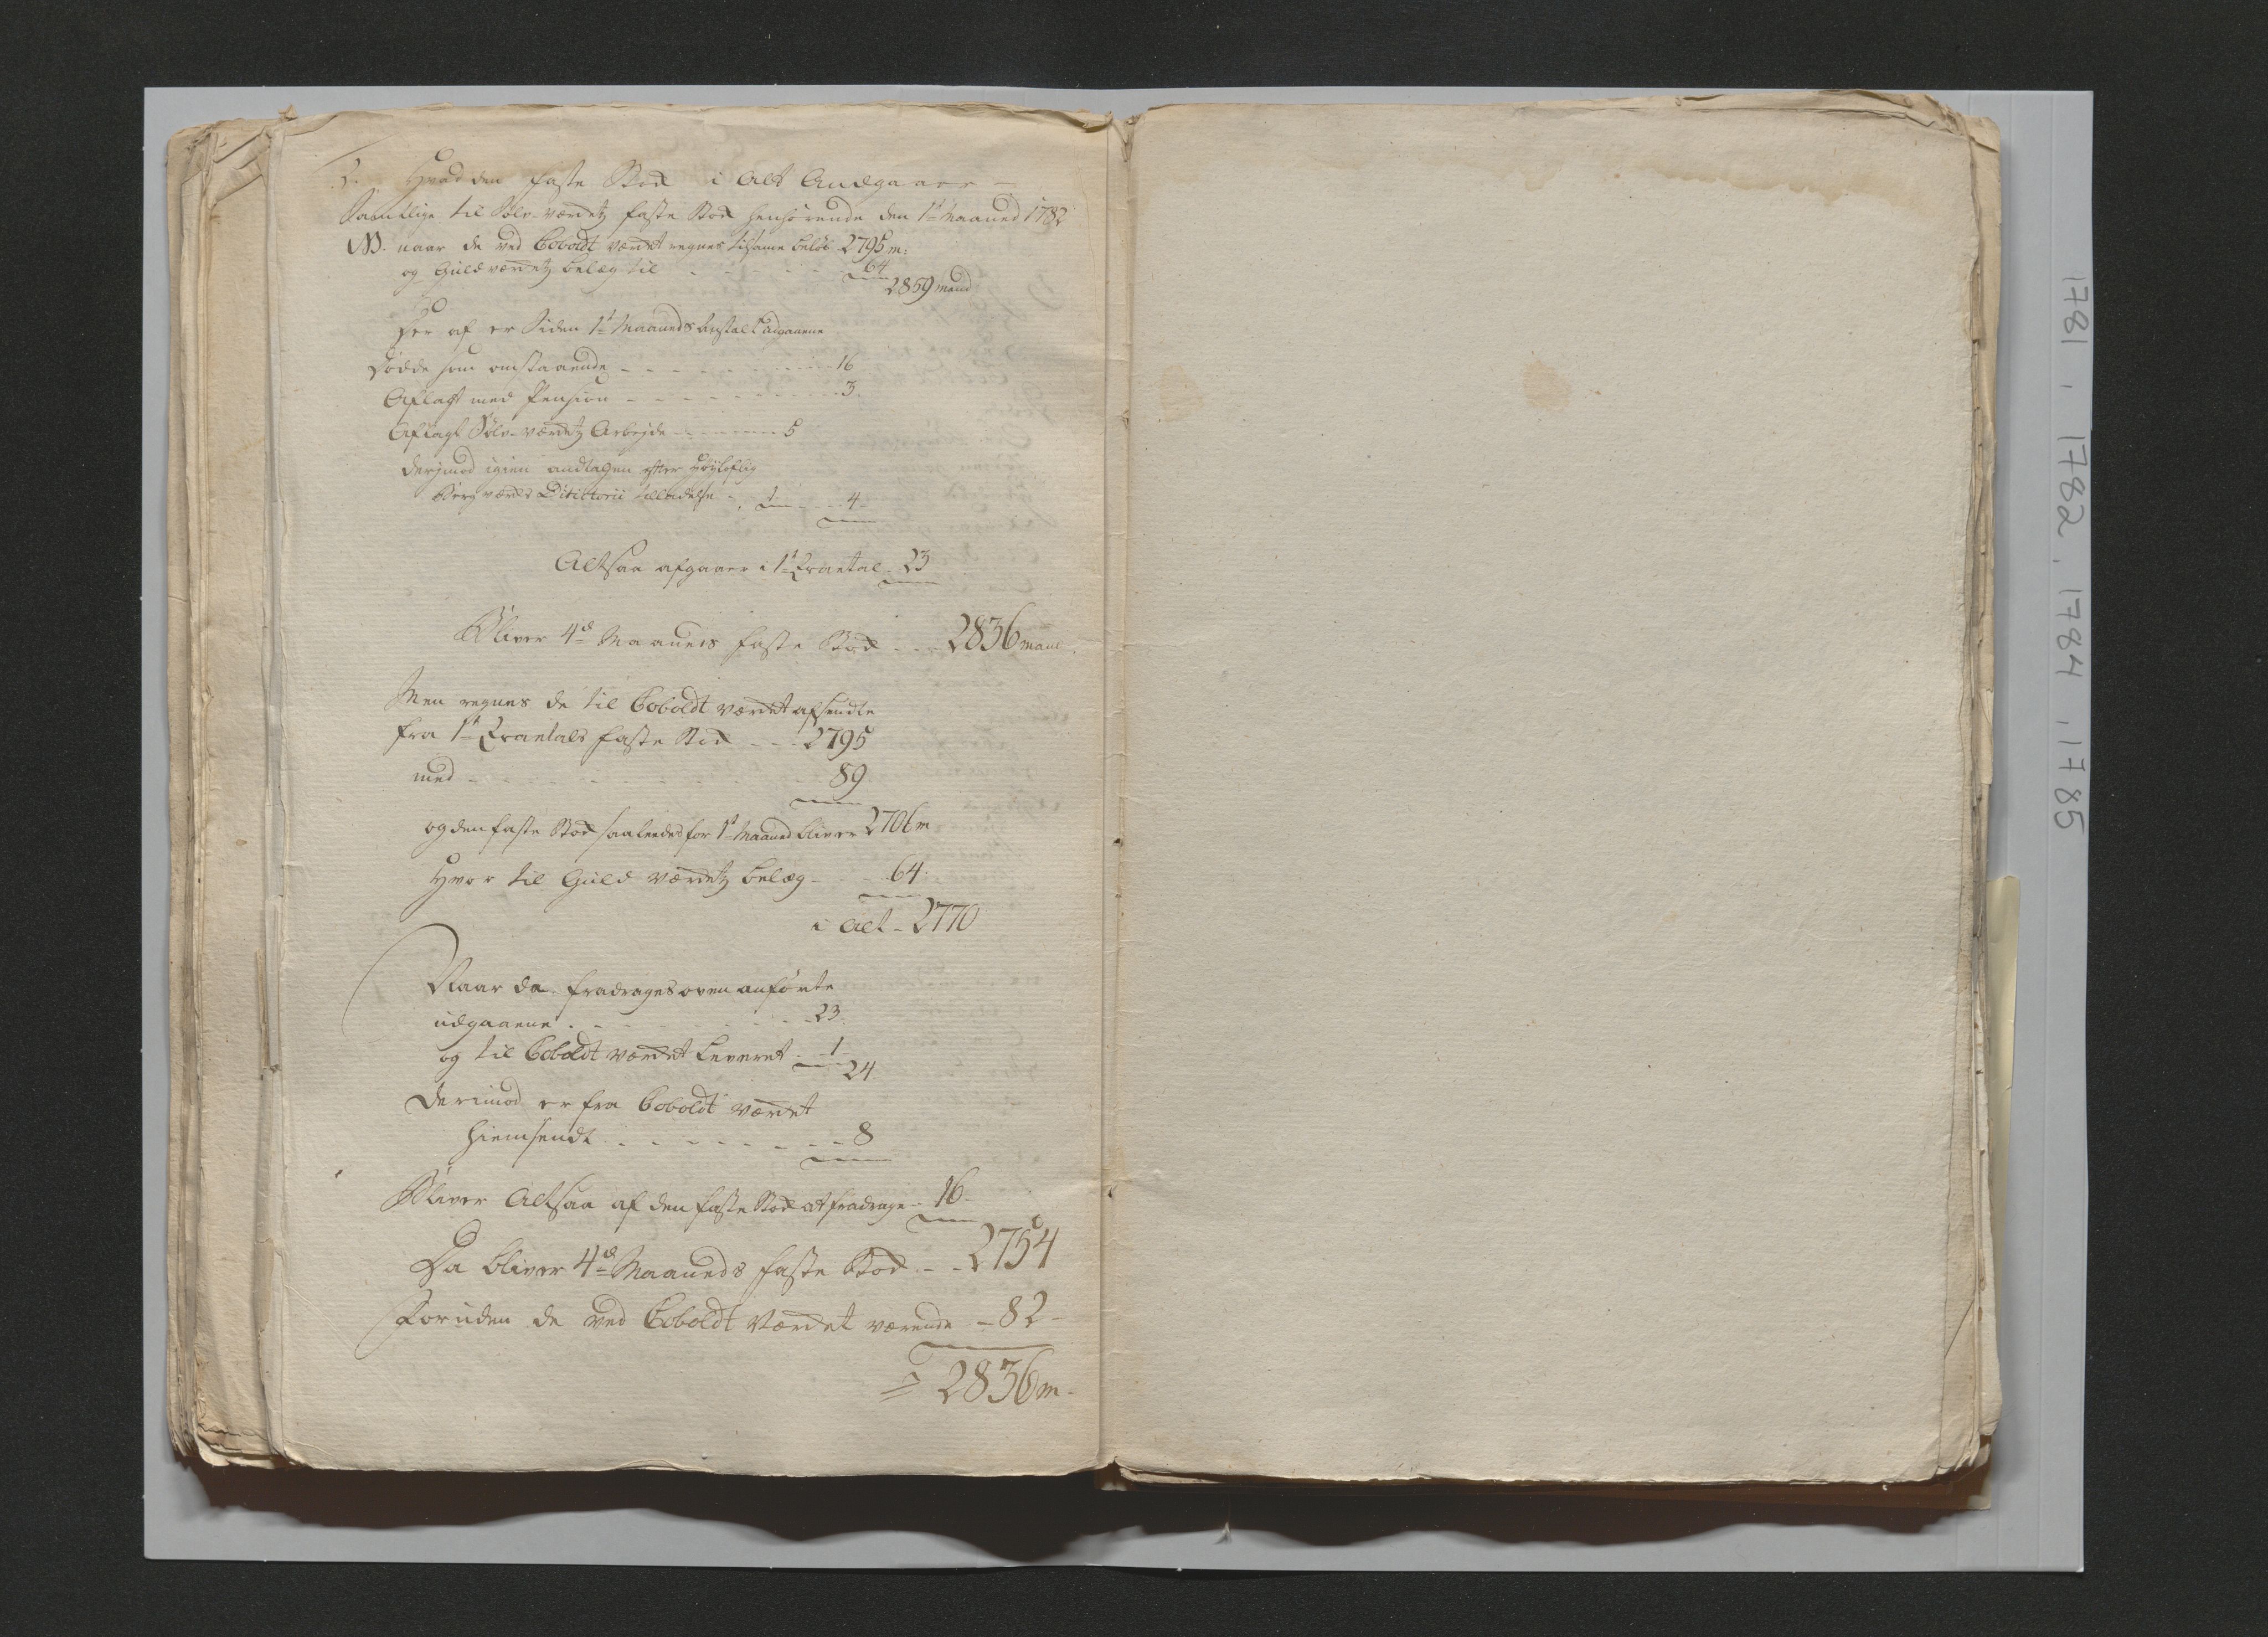 Hvad den faste Stok i Alt Andgaaer –
Samtlige til Sølv-værketz faste Stok henhørende den 1te Maaned 1782
NB. naar de ved Coboldt værket regnes tilsame beløb 2795 m:
og Guldværketz belæg til - - - - 64
2859 mand
Her af er siden 1te Maaneds Anstalt afgaaene
Døde som omstaaende - - - - - - 16
Aflagt med Pension - - - - - - 3.
Aflagt Sølv-værketz Arbejde - - - - 5
Derjmod igien andtagen efter Høyloflig
Berg værks Directorii tilladelse - 1 - - - 4
Altsaa afgaaer i 1te Qvartal - 23
Bliver 4de Maaneds faste Stok - - - 2836 mand.
Men regnes de til Coboldt værket afsendte
fra 1te Qvartals faste Stok - - - 2795
med - - - - - - - 89
og den faste Stok saaleedes for 1te Maaned bliver 2706 m
Hvor til Guld værketz belæg - - - 64.
i Alt - 2770
Naar da fradrages oven anførte
udgaaene . - - - - - - 23.
og til Coboldt værket leveret - 1
24
Derimod er fra Coboldt værket
hiemsendt - - - - - - - 8
Bliver Altsaa af den faste Stok at fradrage - 16 -
Da bliver 4de Maaneds faste Stok - - 2754
Foruden de ved Coboldt Værket værende - 82 -
2836 m -
1781, 1782, 1784, 1785